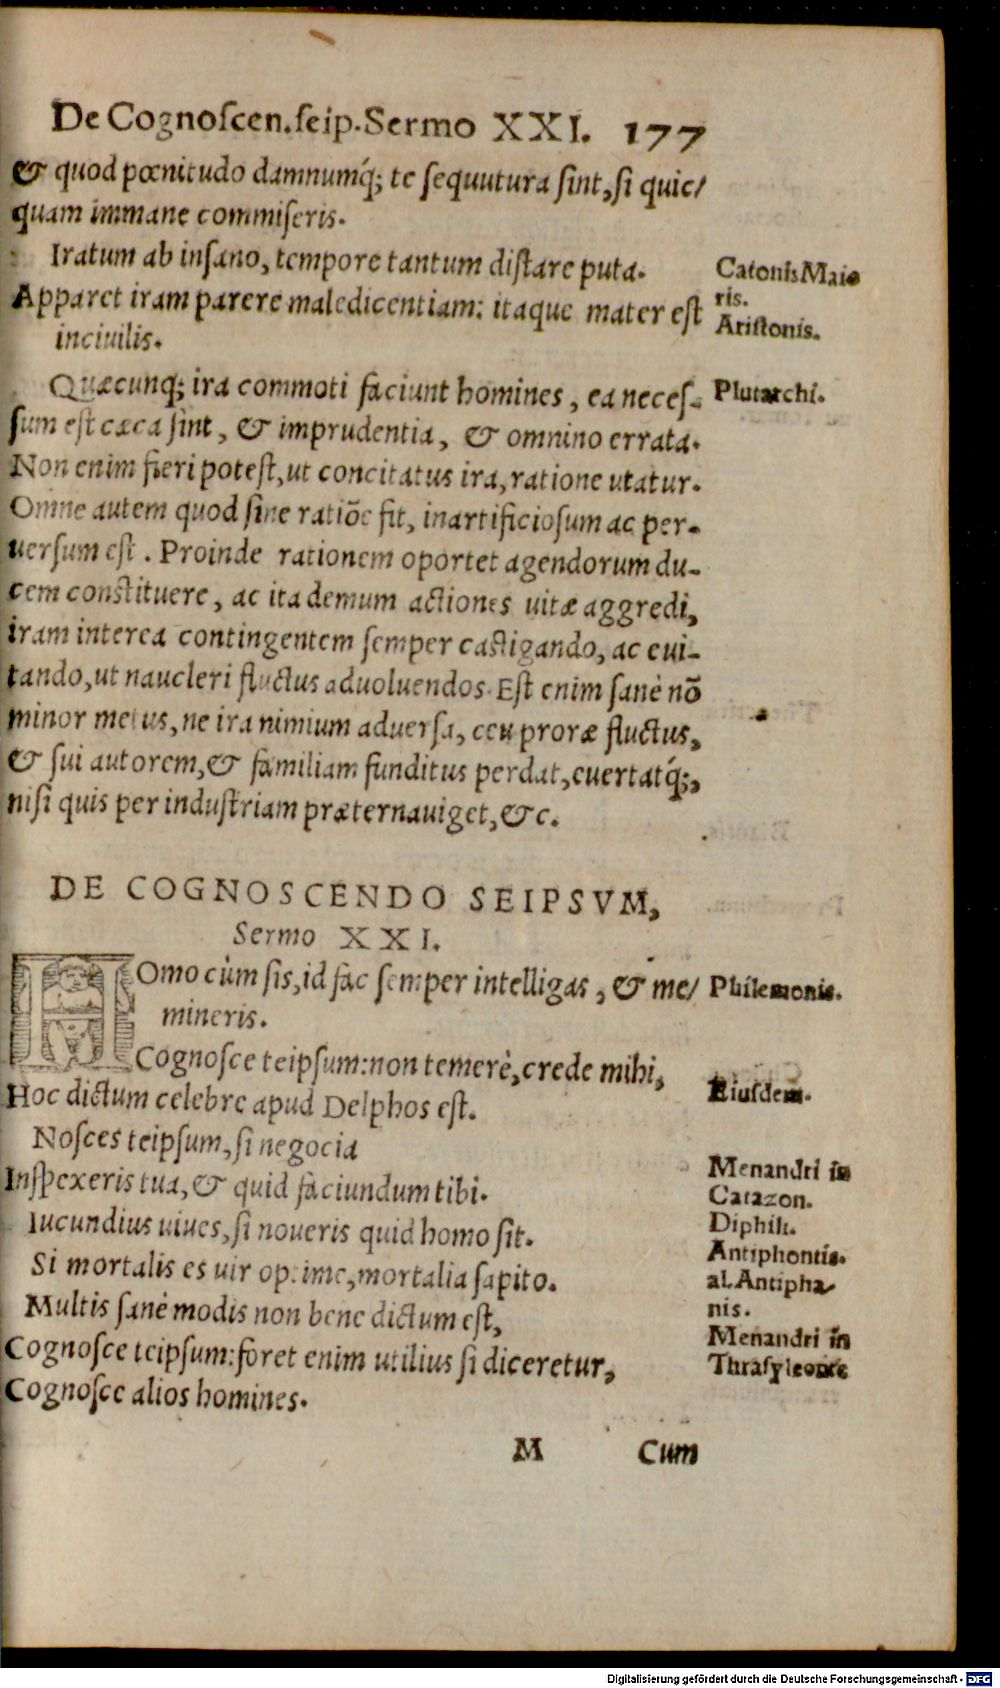 De Cognoſcen.ſeip.Sermo XXI. 177
& quod pœnitudo damnumq́; te ſequutura ſint, ſi quic/
quam immane commiſeris.
Iratum ab inſano, tempore tantum diſtare puta.
Catonis Maio
ris.
Apparet iram parere maledicentiam: itaque mater eſt
inciuilis.
Ariſtonis.
Quæcunq; ira commoti faciunt homines, ea neceſ-
Plutarchi.
ſum eſt cæca ſint, & imprudentia, & omnino errata.
Non enim fieri poteſt, ut concitatus ira, ratione utatur.
Omne autem quod ſine ratiōe fit, inartificioſum ac per-
uerſum eſt. Proinde rationem oportet agendorum du-
cem conſtituere, ac ita demum actiones uitæ aggredi,
iram interea contingentem ſemper caſtigando, ac eui-
tando, ut naucleri fluctus aduoluendos. Eſt enim ſanè nō
minor metus, ne ira nimium aduerſa, ceu proræ fluctus,
& ſui autorem, & familiam funditus perdat, euertatq́;,
niſi quis per induſtriam præternauiget, &c.
DE COGNOSCENDO SEIPSVM,
Sermo XXI.
HOmo cùm ſis, id fac ſemper intelligas, & me/
mineris.
Philemonis.
Cognoſce teipſum: non temerè, crede mihi,
Hoc dictum celebre apud Delphos eſt.
Eiuſdem.
Noſces teipſum, ſi negocia
Inſpexeris tua, & quid faciundum tibi.
Menandri in
Catazon.
Iucundius uiues, ſi noueris quid homo ſit.
Diphili.
Si mortalis es uir optime, mortalia ſapito.
Antiphontis.
al. Antipha-
nis.
Multis ſanè modis non bene dictum eſt,
Cognoſce teipſum: foret enim utilius ſi diceretur,
Cognoſce alios homines.
Menandri in
Thraſyleonte
M Cum
Digitalisierung gefördert durch die Deutsche Forschungsgemeinschaft - DFG